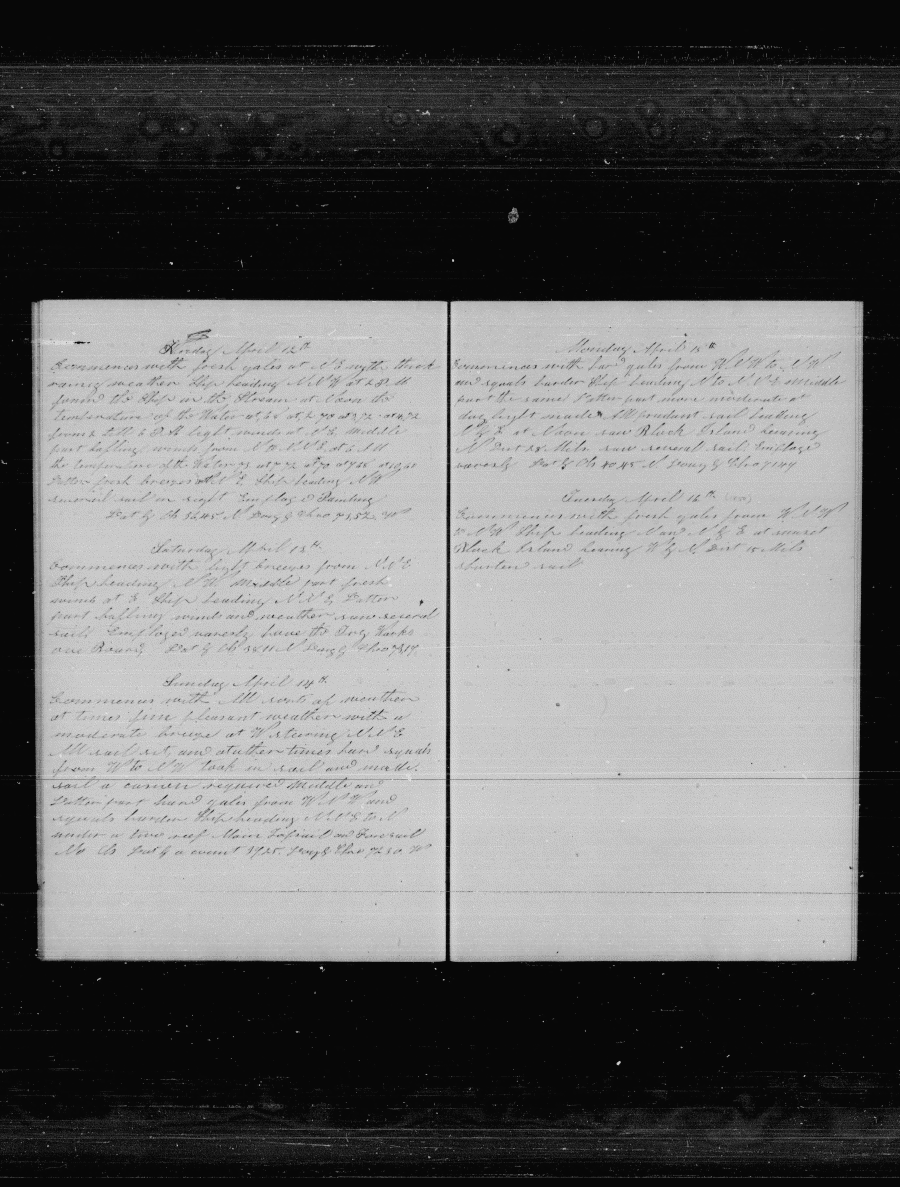 Friday April 12th
Commences with fresh gales at S E with thick
rainy weather Ship heading N N W at 2 P M
found the Ship in the Stream at Noon the
temperature of the Water at
from to P M light winds at S E Middle
part baffling winds from to N N E at 6 A M
the temperature of the Water 73 at
Latter fresh breezes at N E Ship heading N W
several sail in sight Employed Painting
Lat by Ob 36.45 N Long by Chro 73.52 W
Saturday April 13th
Commences with light breezes from N N E
Ship heading N W Middle part fresh
winds at E Ship heading N N E Latter
part baffling winds and weather saw several
sails Employed variously hove the Trey Works
over Board Lat by Ob 38.11 N Long by Chro
Sunday April 14th
Commences with All sorts of weather
at times fine pleasant weather with a
moderate breeze at W steering N N E
All sail set, and at other times hard squals
from W to N W took in sail and made
sail as occasion required Middle and
Latter part hard gales from W N W and
squals harder Ship heading N N E to N
under a two reef Main Topsail and Foresail
No Ob Lat by account 39.25 Long by Chro W
Monday April 15th
Commences with hard gales from W N W to N W
and squals harder Ship heading N to N N E Middle
part the same Latter part more moderate at
day light made All prudent sail heading
N by E at Noon saw Block Island bearing
N Dist 28 Mils saw several sail Employed
variously Lat by Ob 40.45 N Long by Chro
Tuesday April 16th
Commences with fresh gales from W N W
to N W Ship heading N and N by E at sunset
Block Island bearing W by N Dist 15 Mils
shorten sail